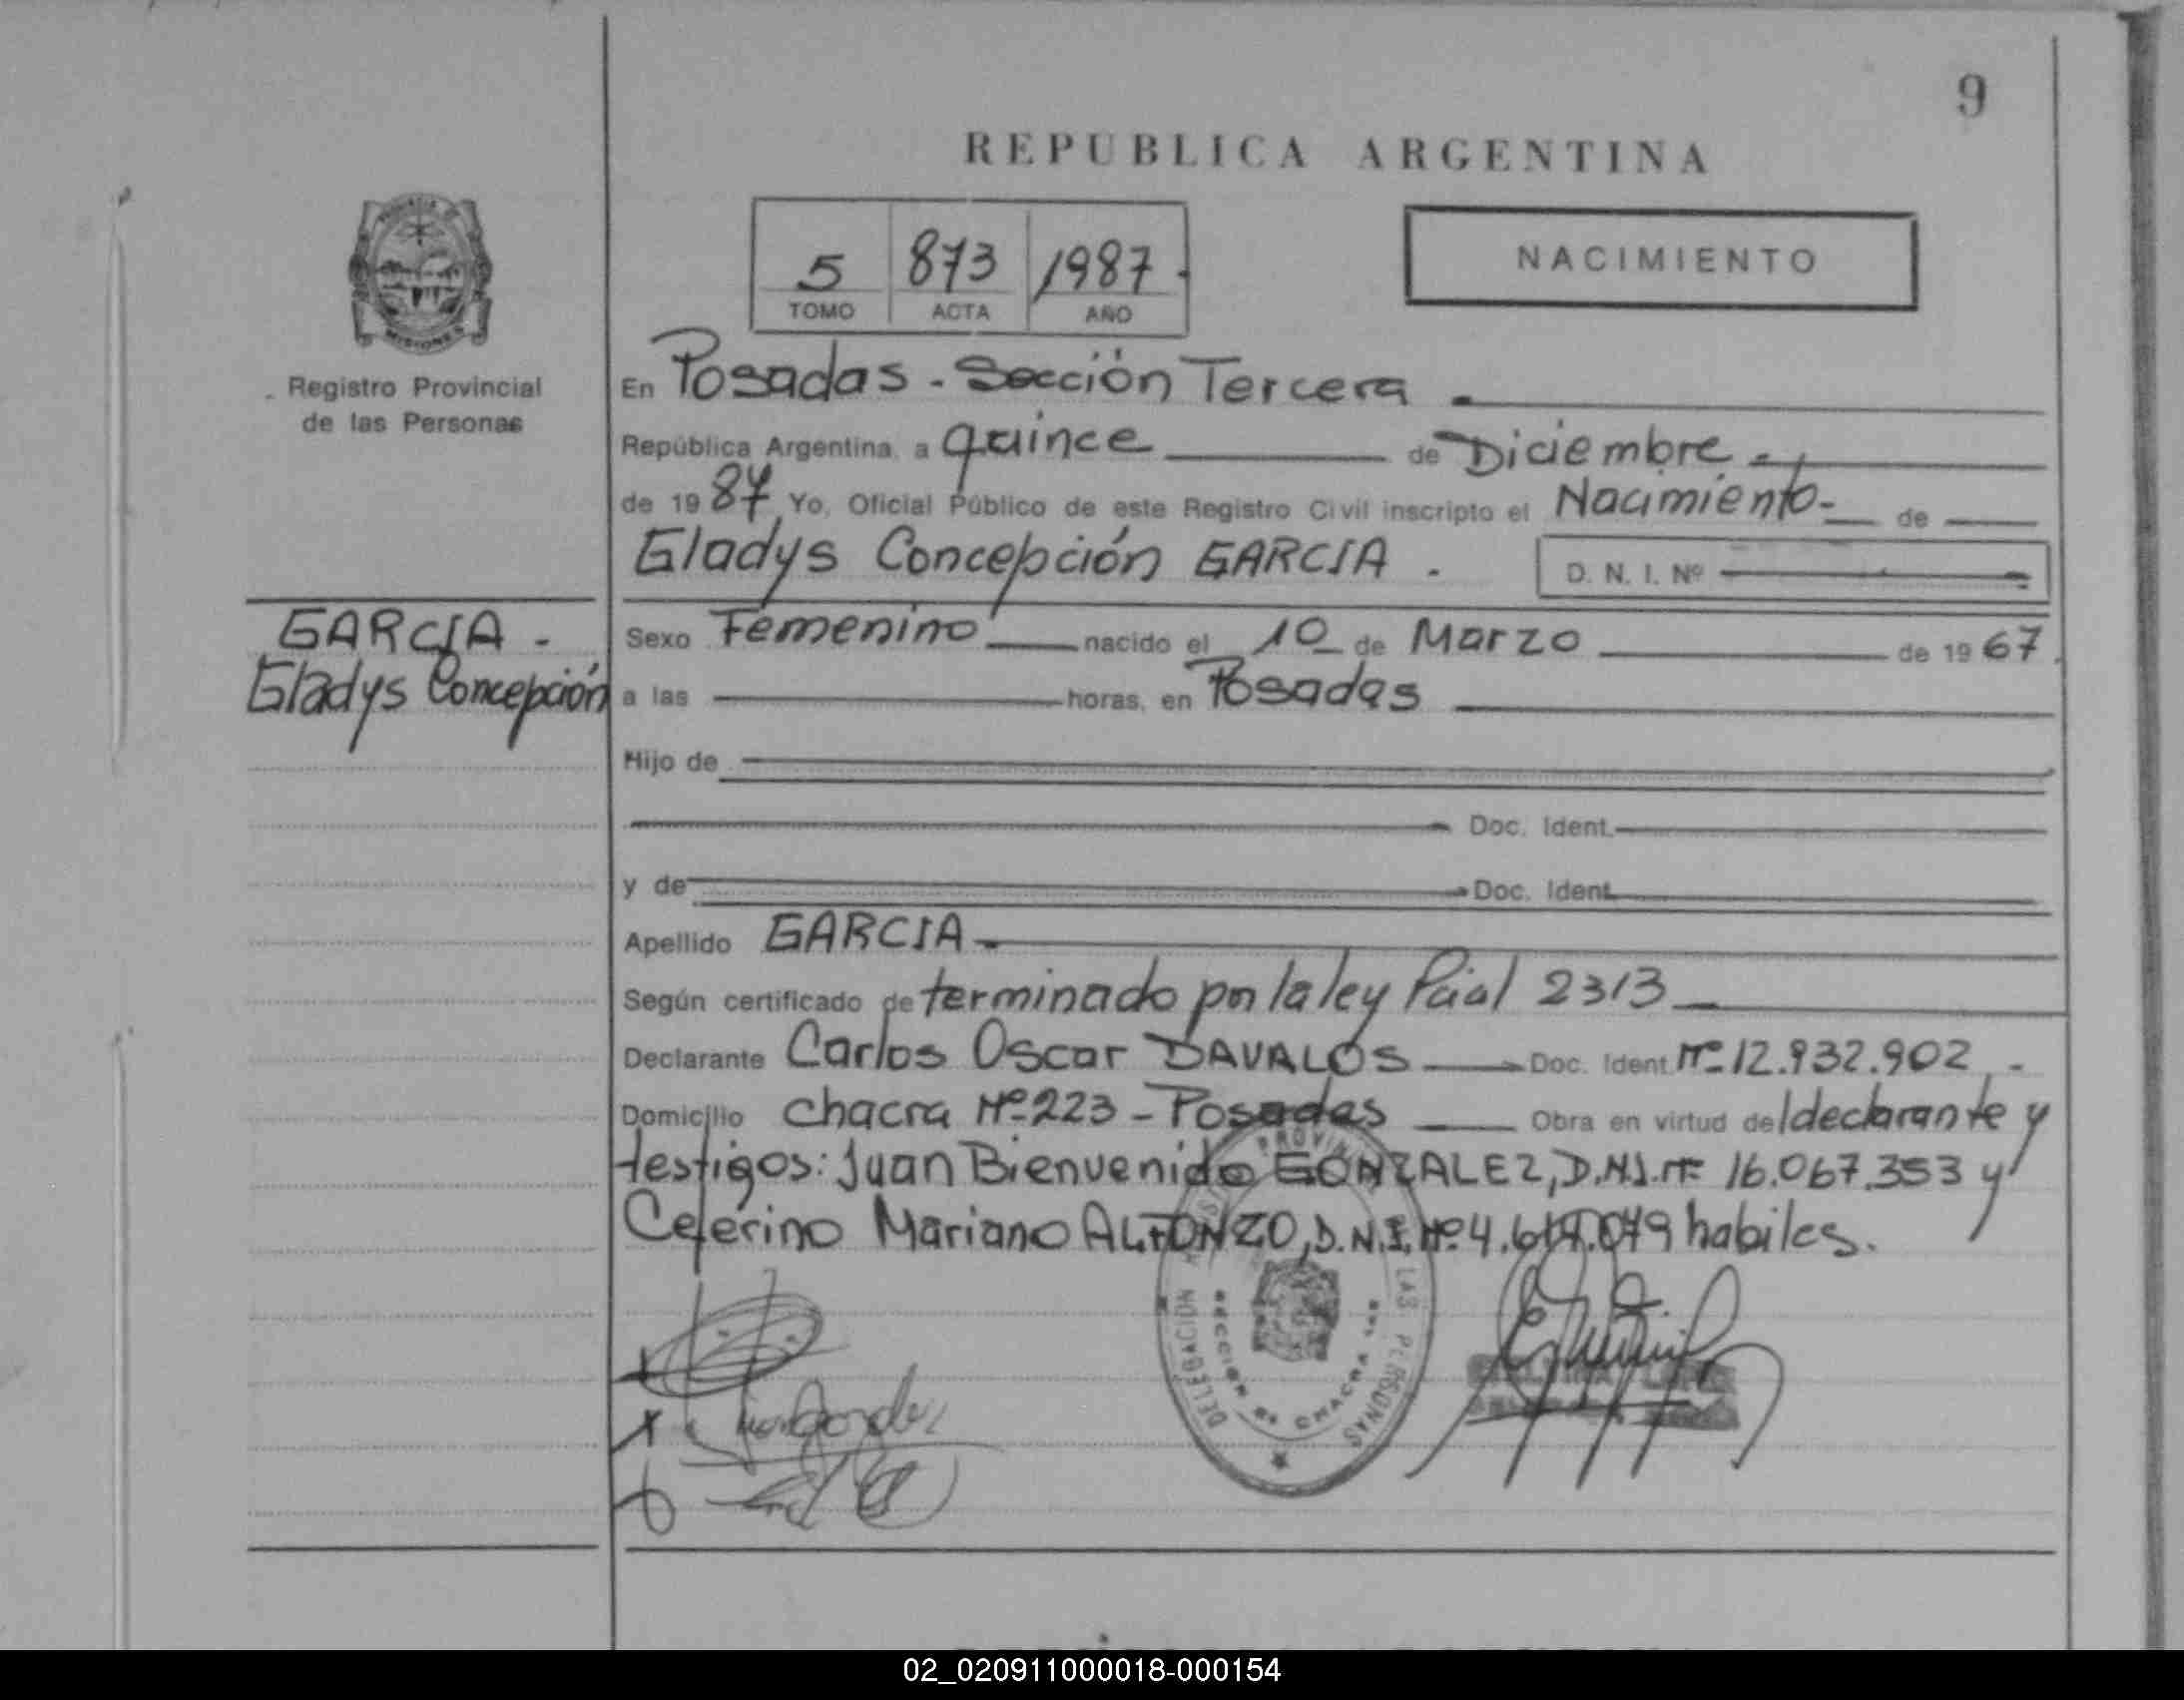 9
REPUBLICA ARGENTINA
5 873 1987.
TOMO ACTA AÑO
NACIMIENTO
MISIONES
Registro Provincial
de las Personas
En Posadas. - Sección Tercera.
República Argentina, a quince de Diciembre.
de 1987 Yo, Oficial Público de este Registro Civil inscripto el Nacimiento- de
Gladys Concepción GARCIA. D. N. I. Nº
GARCIA.
Gladys Concepción
Sexo Femenino nacido el 10 de Marzo de 1967.
a las horas, en Posadas
Hijo de
Doc. Ident.
y de Doc. Ident.
Apellido GARCIA
Según certificado de terminado por la ley Pcial 2313
Declarante Carlos Oscar DAVALOS Doc. Ident. Nº 12.932.902.
Domicilio chacra Nº 223 - Posadas Obra en virtud del declarante y
testigos: Juan Bienvenido GONZALEZ, D.N.I. Nº 16.067.353 y
Ceferino Mariano ALFONZO, D.N.I. Nº 4. habiles.
DELEGACION LAS PERSONAS
SECCION CHACRA
02_020911000018-000154